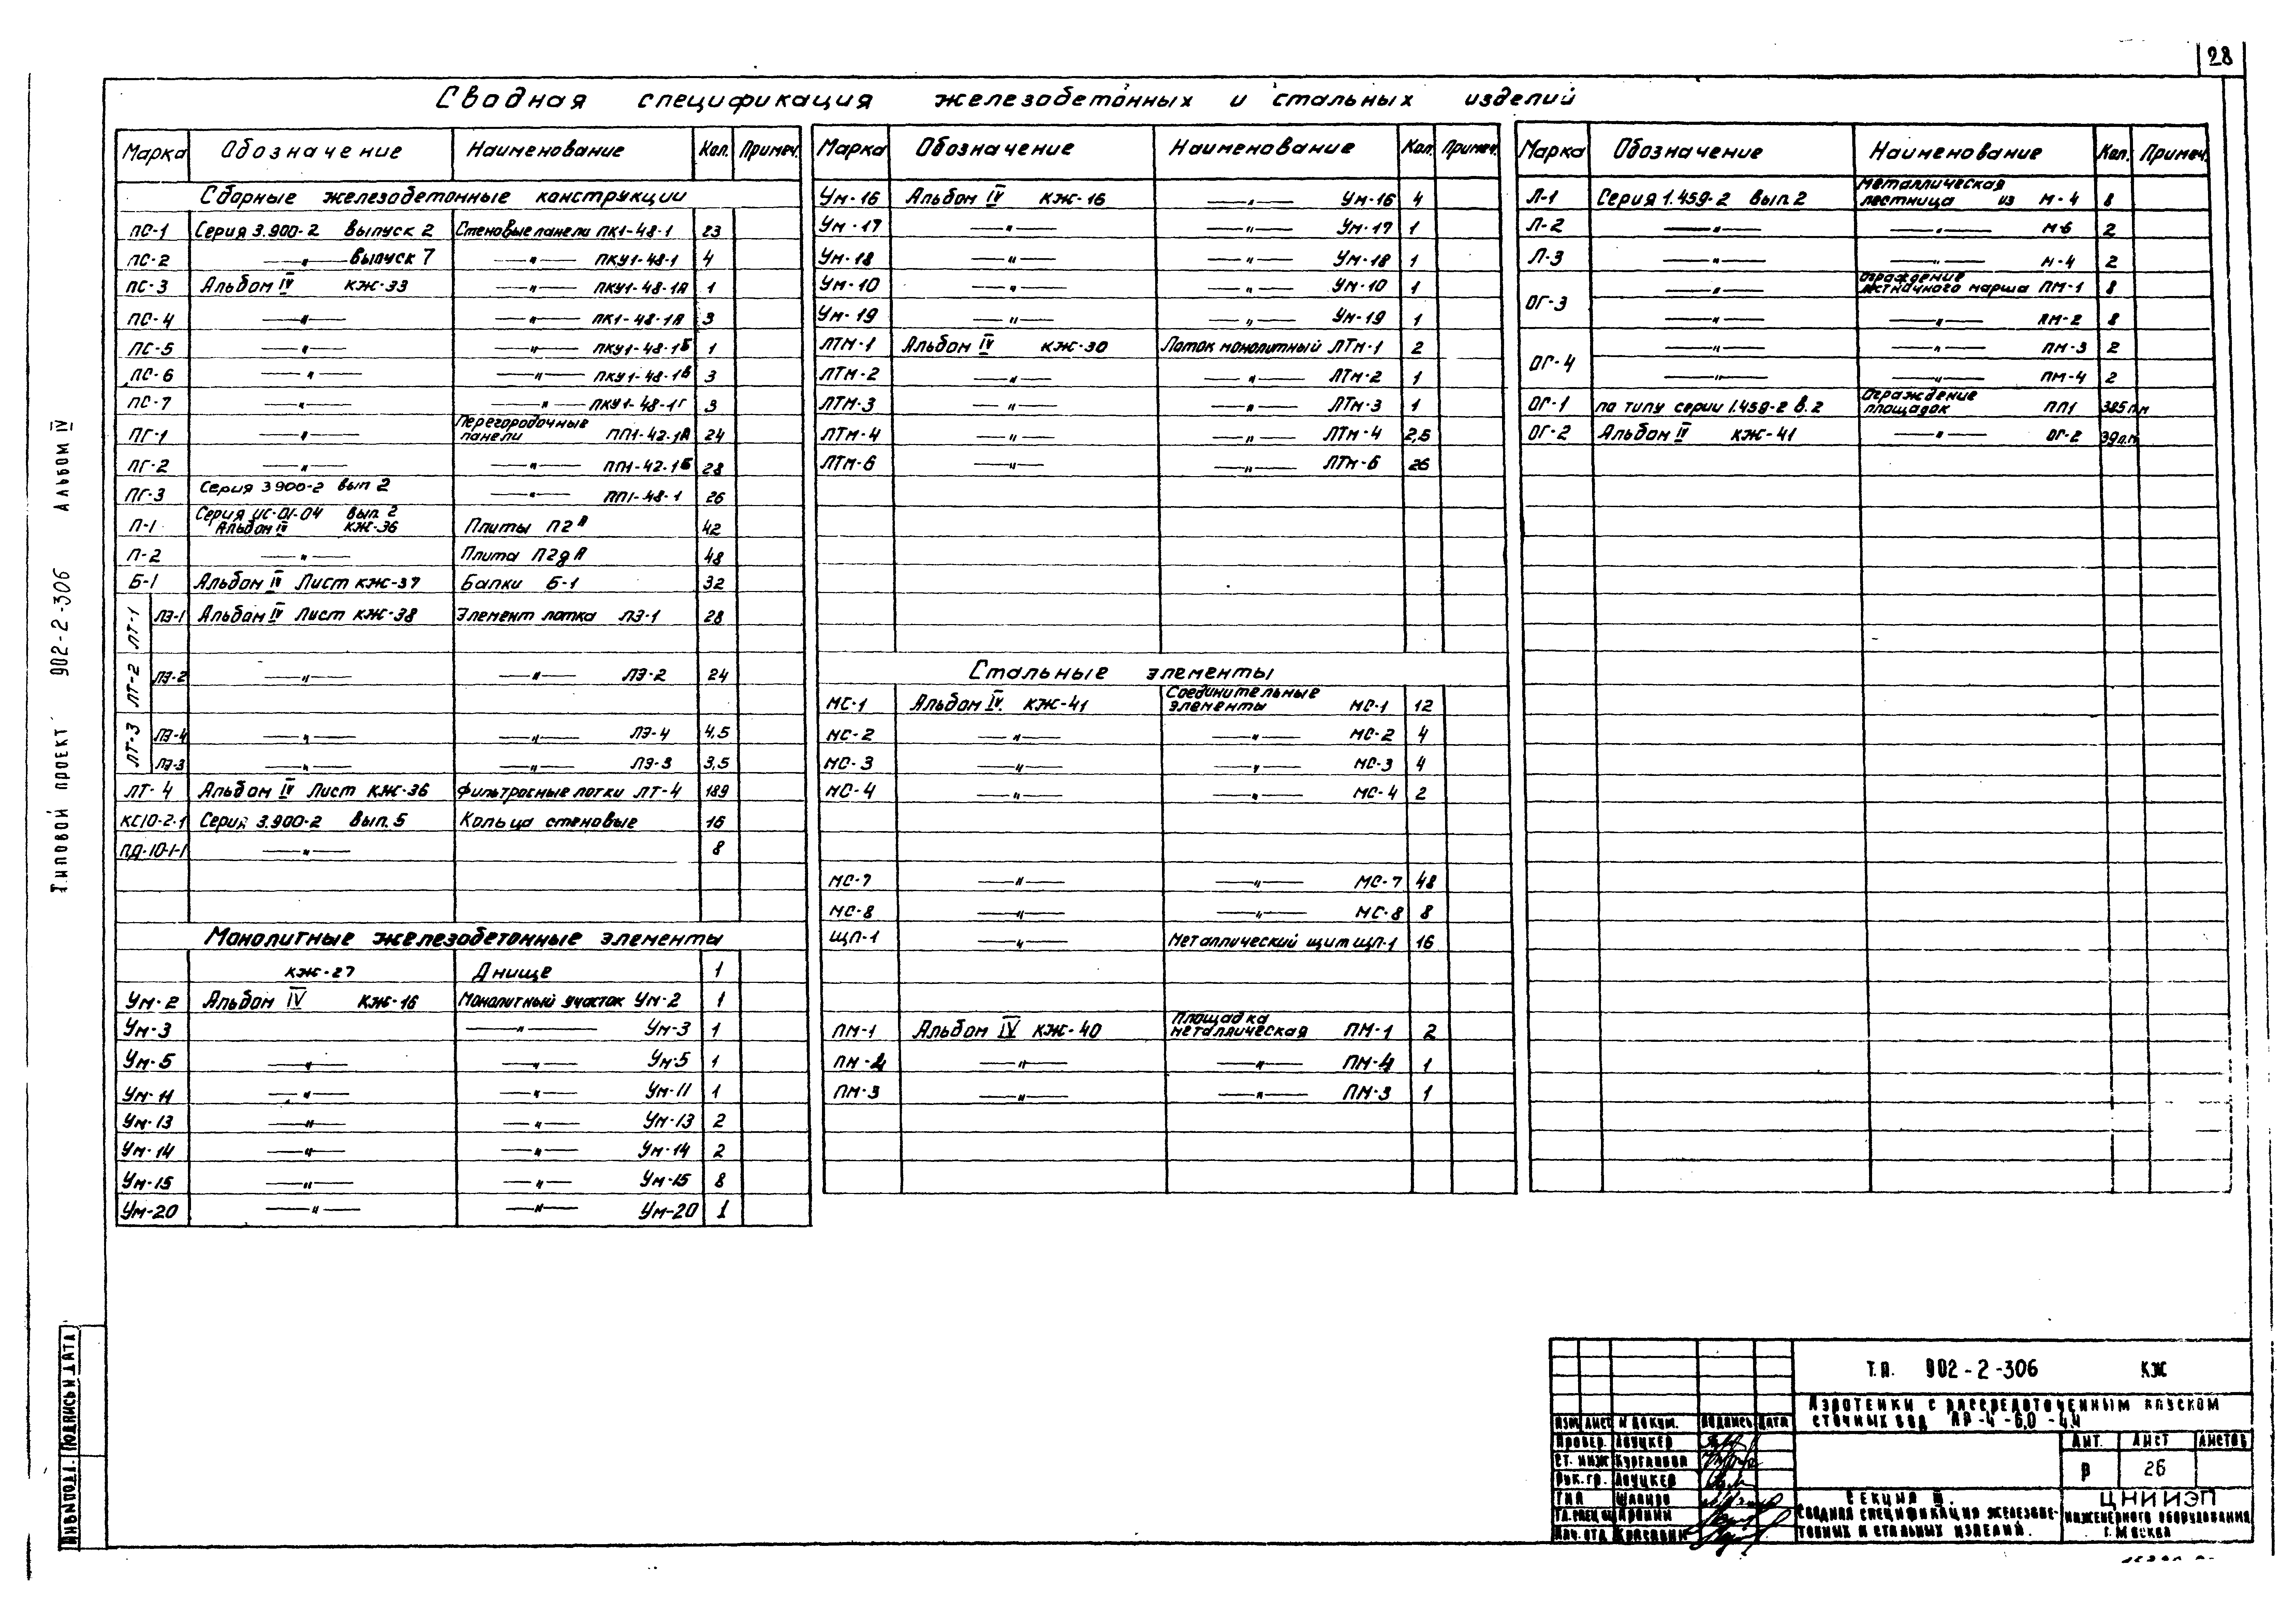 28
Сводная спецификация железобетонных и стальных изделий
Марка Обозначение Наименование Кол. Примеч.
Сборные железобетонные конструкции
ПС-1 Серия 3.900-2 выпуск 2 Стеновые панели ПК1-48-1 23
ПС-2 —"— выпуск 7 —"— ПКУ1-48-1 4
ПС-3 Альбом IV КЖ-33 —"— ПКУ1-48-1А 1
ПС-4 —"— —"— ПК1-48-1А 3
ПС-5 —"— —"— ПКУ1-48-1Б 1
ПС-6 —"— —"— ПКУ1-48-1В 3
ПС-7 —"— —"— ПКУ1-48-1Г 3
ПГ-1 —"— Перегородочные панели ПП1-42-1А 24
ПГ-2 —"— —"— ПП1-42-1Б 28
ПГ-3 Серия 3900-2 вып 2 —"— ПП1-48-1 26
П-1 Серия ИС-01-04 вып. 2
Альбом IV КЖ-36 Плиты П2А 42
П-2 —"— Плита П2дА 48
Б-1 Альбом IV Лист КЖ-37 Балки Б-1 32
ЛТ-1 ЛЭ-1 Альбом IV Лист КЖ-38 Элемент лотка ЛЭ-1 28
ЛТ-2 ЛЭ-2 —"— —"— ЛЭ-2 24
ЛТ-3 ЛЭ-4 —"— —"— ЛЭ-4 4,5
ЛЭ-3 —"— —"— ЛЭ-3 3,5
ЛТ-4 Альбом IV Лист КЖ-36 Фильтросные лотки ЛТ-4 189
КС10-2-1 Серия 3.900-2 вып. 5 Кольца стеновые 16
ПД-10-1-1 —"— 8
Монолитные железобетонные элементы
КЖ-27 Днище 1
Ум-2 Альбом IV КЖ-16 Монолитный участок Ум-2 1
Ум-3 —"— Ум-3 1
Ум-5 —"— —"— Ум-5 1
Ум-11 —"— —"— Ум-11 1
Ум-13 —"— —"— Ум-13 2
Ум-14 —"— —"— Ум-14 2
Ум-15 —"— —"— Ум-15 8
Ум-20 —"— —"— Ум-20 1
Марка Обозначение Наименование Кол. Примеч.
Ум-16 Альбом IV КЖ-16 —"— Ум-16 4
Ум-17 —"— —"— Ум-17 1
Ум-18 —"— —"— Ум-18 1
Ум-10 —"— —"— Ум-10 1
Ум-19 —"— —"— Ум-19 1
ЛТм-1 Альбом IV КЖ-30 Лоток монолитный ЛТм-1 2
ЛТм-2 —"— —"— ЛТм-2 1
ЛТм-3 —"— —"— ЛТм-3 1
ЛТм-4 —"— —"— ЛТм-4 2,5
ЛТм-6 —"— —"— ЛТм-6 26
Стальные элементы
МС-1 Альбом IV. КЖ-41 Соединительные элементы МС-1 12
МС-2 —"— —"— МС-2 4
МС-3 —"— —"— МС-3 4
МС-4 —"— —"— МС-4 2
МС-7 —"— —"— МС-7 48
МС-8 —"— —"— МС-8 8
ЩП-1 —"— Металлический щит ЩП-1 16
ПМ-1 Альбом IV КЖ-40 Площадка металлическая ПМ-1 2
ПМ-4 —"— —"— ПМ-4 1
ПМ-3 —"— —"— ПМ-3 1
Марка Обозначение Наименование Кол. Примеч.
Л-1 Серия 1.459-2 вып. 2 Металлическая лестница из М-4 8
Л-2 —"— —"— М-6 2
Л-3 —"— —"— М-4 2
ОГ-3 —"— Ограждение лестничного марша ПМ-1 8
—"— —"— ПМ-2 8
ОГ-4 —"— —"— ПМ-3 2
—"— —"— ПМ-4 2
ОГ-1 по типу серии 1.459-2 в. 2 Ограждение площадок ПП1 385 п.м
ОГ-2 Альбом IV КЖ-41 —"— ОГ-2 39 п.м
Типовой проект 902-2-306 Альбом IV
Инв№ подл. Подпись и дата
Т.П. 902-2-306 КЖ
Аэротенки с рассредоточенным впуском
сточных вод АР-4-6,0-4,4
Изм Лист N докум. Подпись Дата
Провер. Лоуцкер
Ст. инж Курганова
Рук. гр. Лоуцкер
ГИП Шапиро
Гл. спец
Нач. отд Красавин
Лит. Лист Листов
Р 26
Секция III.
Сводная спецификация железобе-
тонных и стальных изделий.
ЦНИИЭП
инженерного оборудования
г. Москва